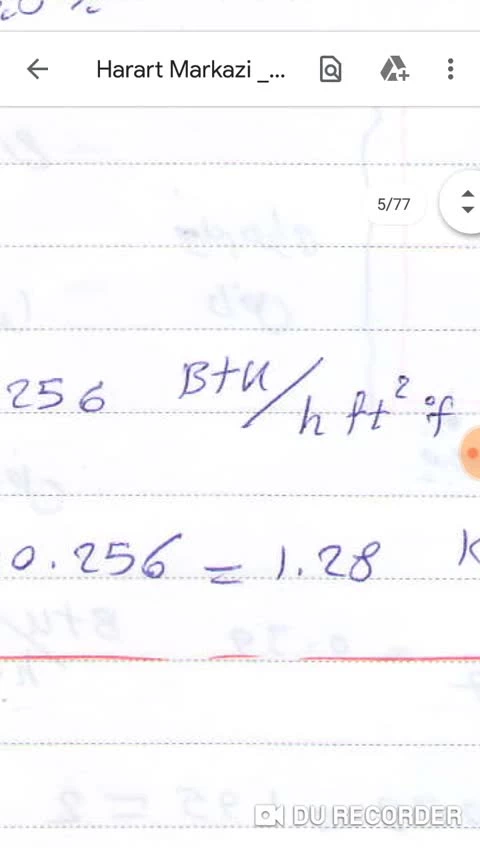 Harart Markazi _...
5/77
256 Btu/h ft² °f
0.256 = 1.28 K
DU RECORDER